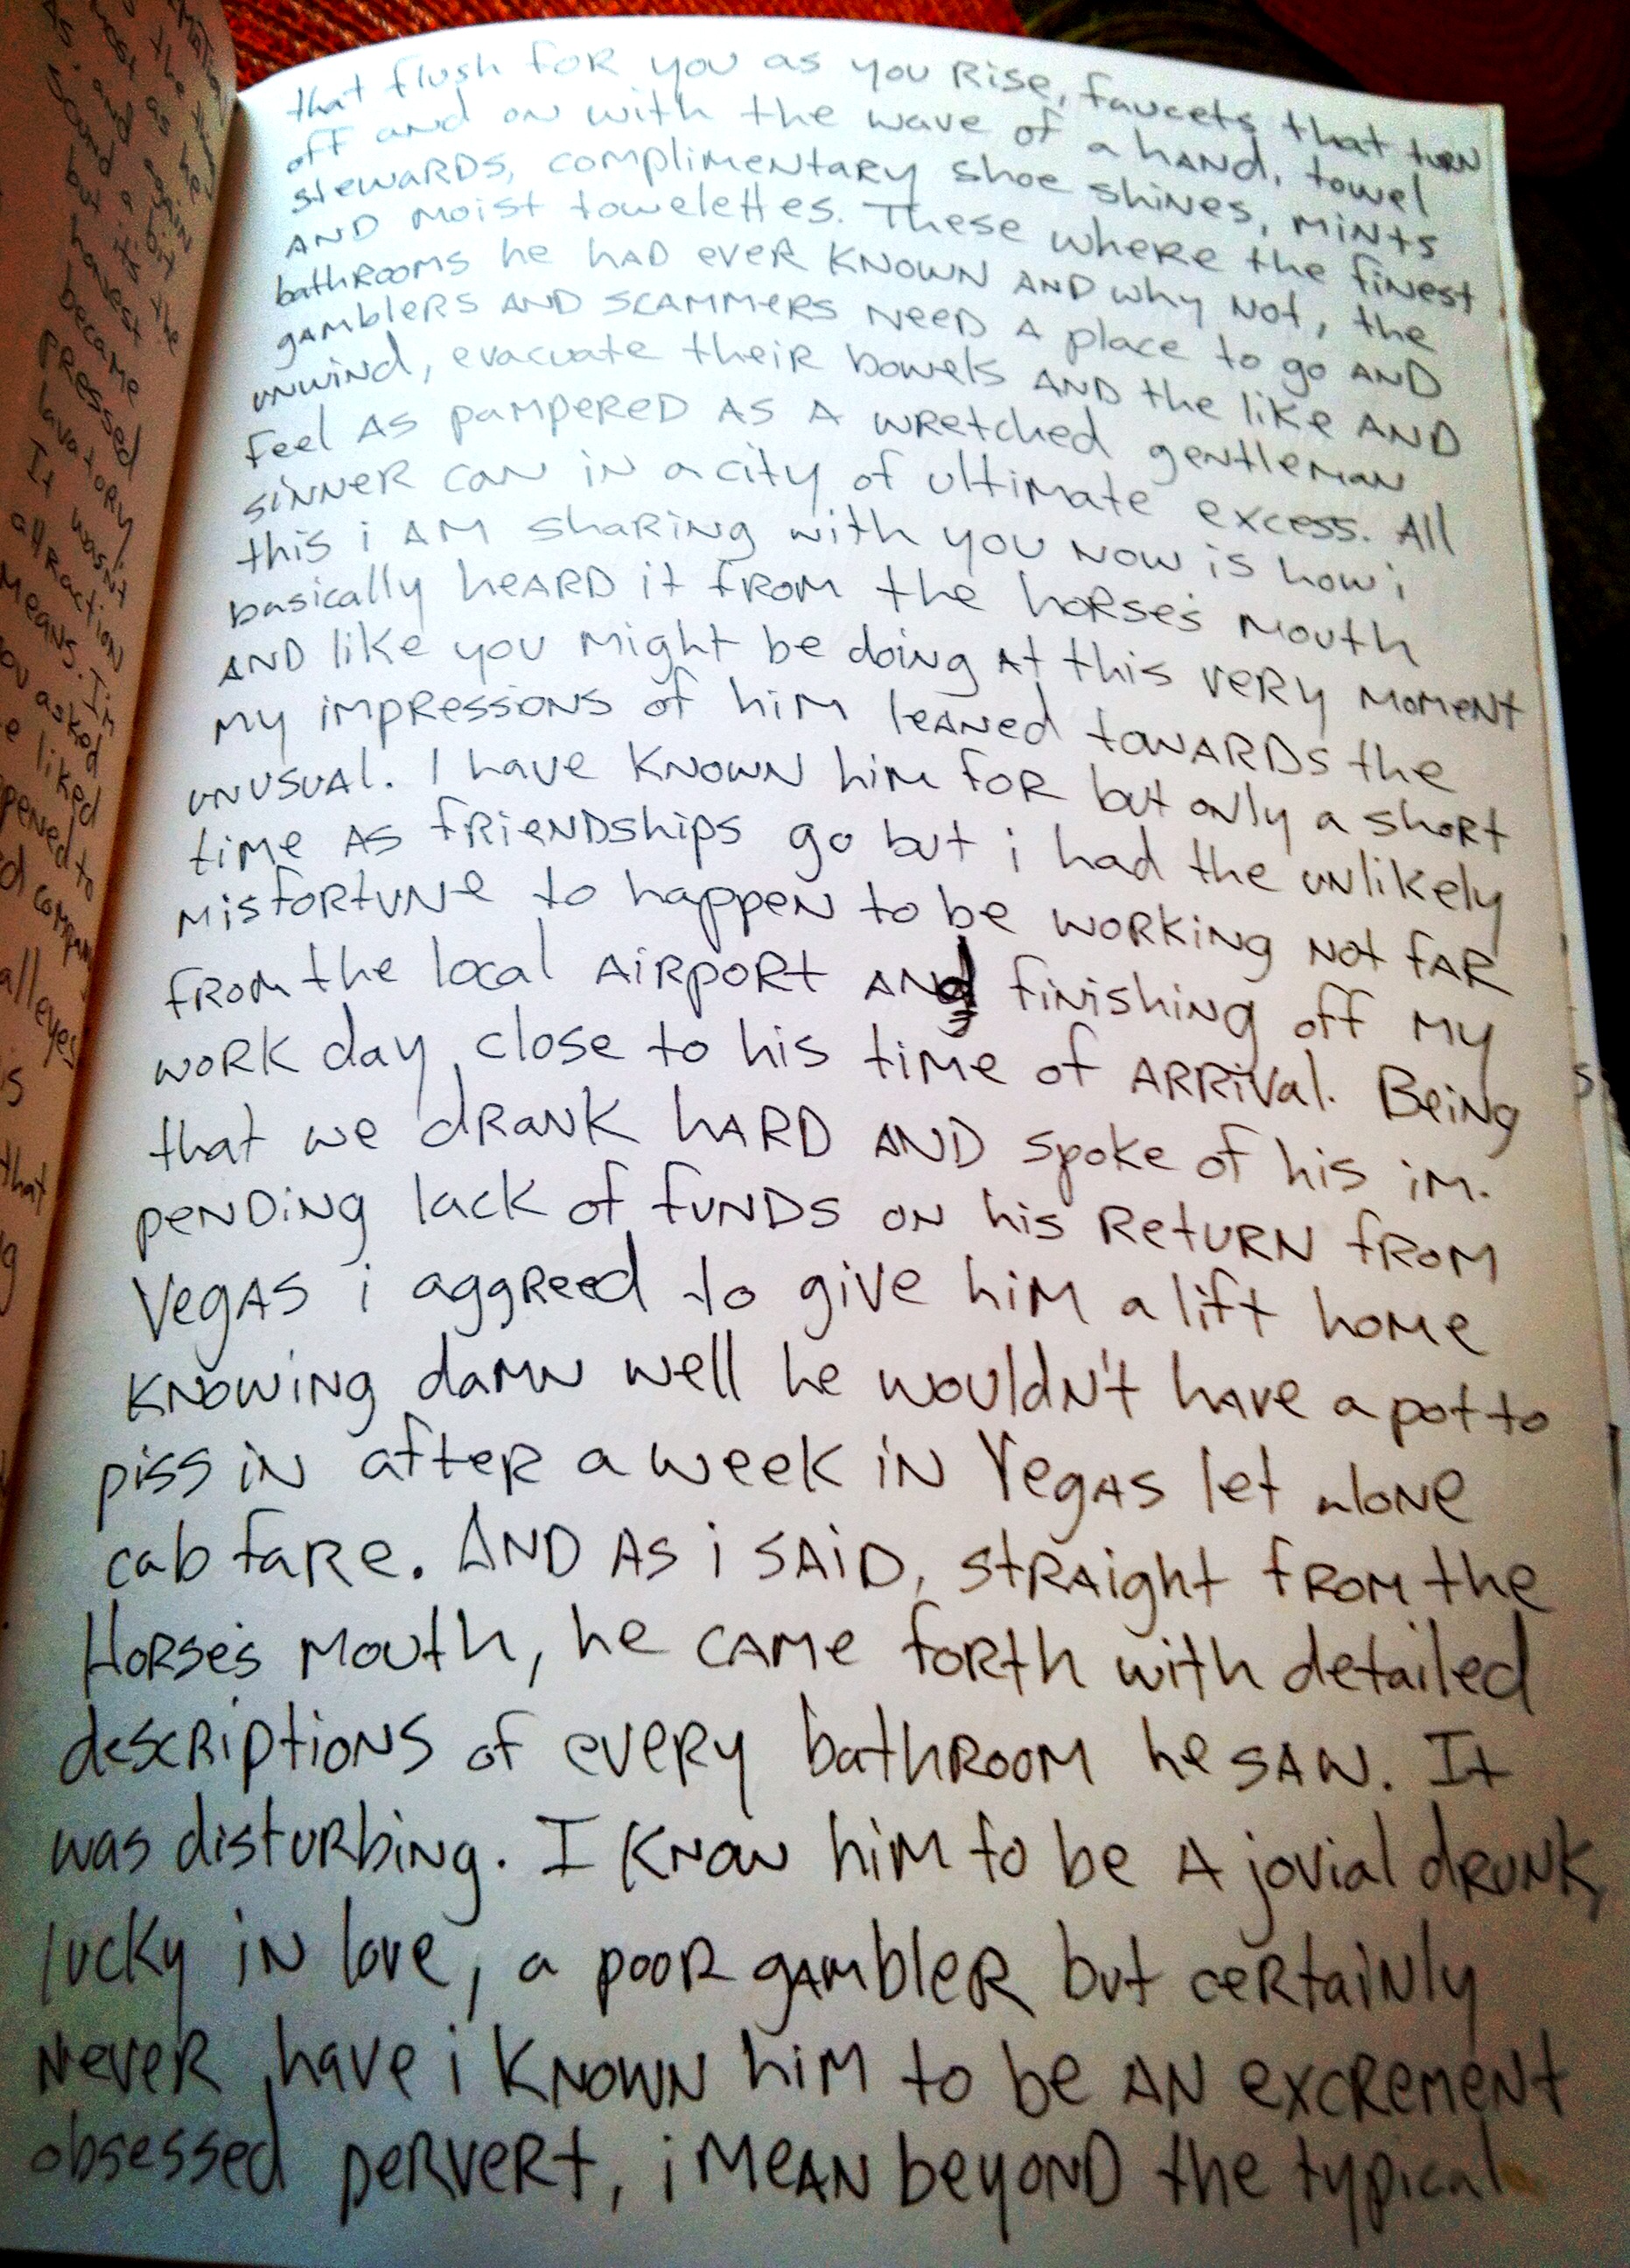 that flush for you as you Rise, faucets that turn
off and on with the wave of a hand, towel
stewards, complimentary shoe shines, mints
and moist towelettes. These where the finest
bathrooms he had ever known and why not, the
gamblers and scammers need a place to go and
unwind, evacuate their bowels and the like and
feel as pampered as a wretched gentleman
sinner can in a city of ultimate excess. All
this i am sharing with you now is how i
basically heard it from the horse's mouth
and like you might be doing at this very moment
my impressions of him leaned towards the
unusual. I have known him for but only a short
time as friendships go but i had the unlikely
misfortune to happen to be working not far
from the local airport and finishing off my
work day close to his time of arrival. Being
that we drank hard and spoke of his im-
pending lack of funds on his return from
Vegas i aggreed to give him a lift home
knowing damn well he wouldn't have a pot to
piss in after a week in Vegas let alone
cab fare. And as i said, straight from the
Horse's mouth, he came forth with detailed
descriptions of every bathroom he saw. It
was disturbing. I know him to be a jovial drunk,
lucky in love, a poor gambler but certainly
never have i known him to be an excrement
obsessed pervert, i mean beyond the typical